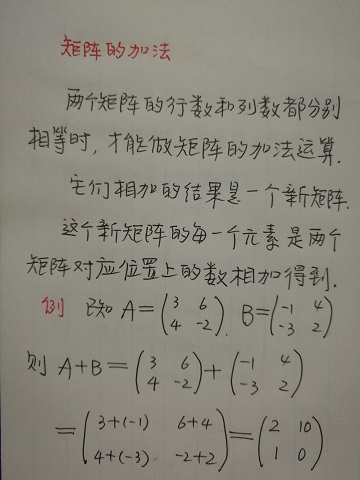 矩阵的加法
两个矩阵的行数和列数都分别
相等时，才能做矩阵的加法运算.
它们相加的结果是一个新矩阵.
这个新矩阵的每一个元素是两个
矩阵对应位置上的数相加得到.
例 已知 A=(3 6; 4 -2). B=(-1 4; -3 2)
则 A+B=(3 6; 4 -2)+(-1 4; -3 2)
=(3+(-1) 6+4; 4+(-3) -2+2)=(2 10; 1 0)